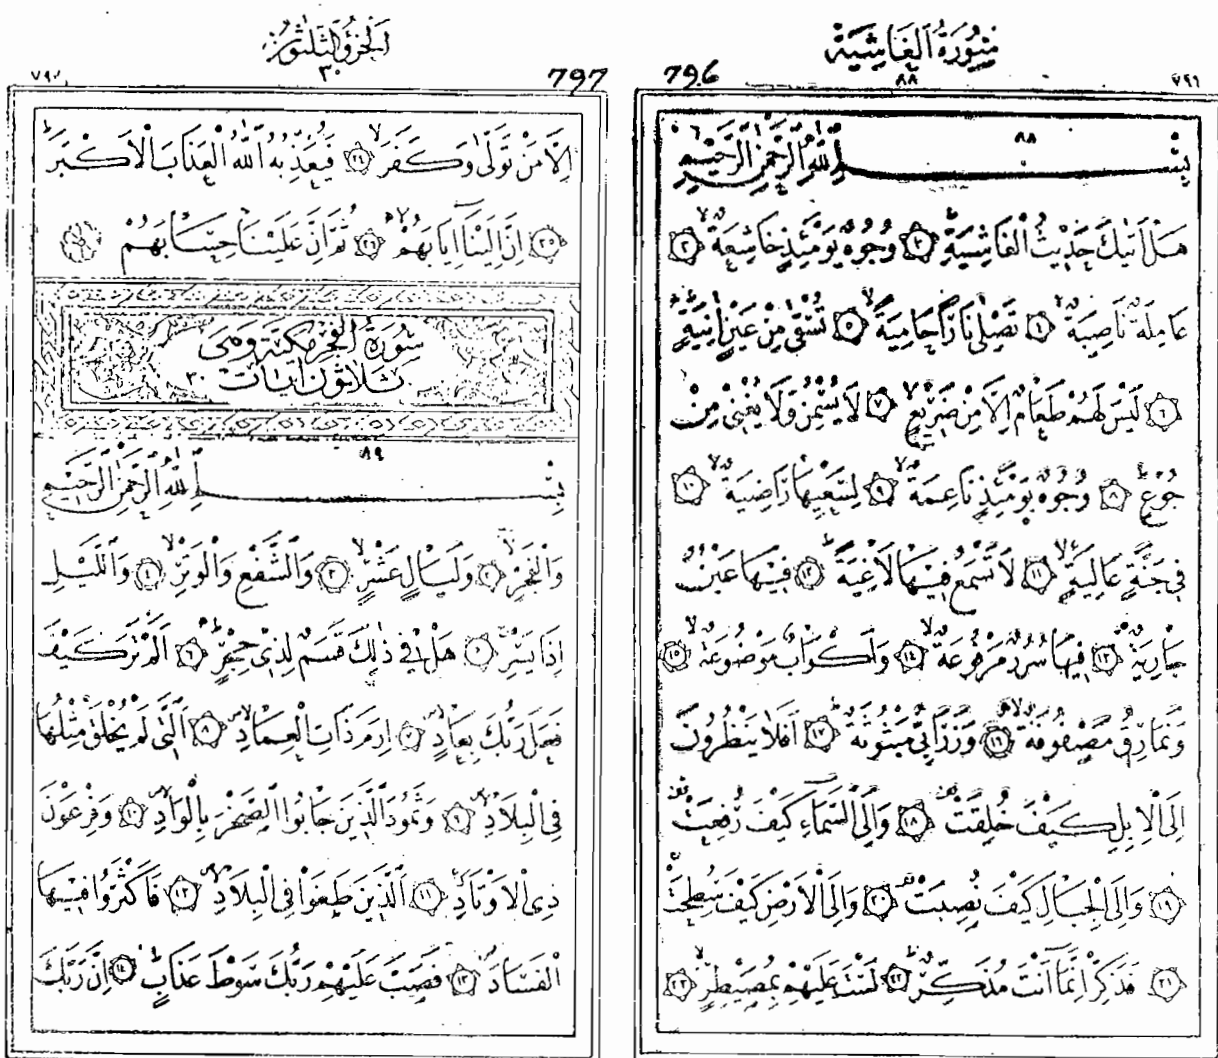 سُورَةُ الْغَاشِيَةِ
796 ٨٨
٨٨
بِسْمِ اللّٰهِ الرَّحْمٰنِ الرَّحِيْمِ
هَلْ اَتٰىكَ حَدِيْثُ الْغَاشِيَةِ ﴿٢﴾ وُجُوْهٌ يَّوْمَئِذٍ خَاشِعَةٌ ﴿٣﴾
عَامِلَةٌ نَّاصِبَةٌ ﴿٤﴾ تَصْلٰى نَارًا حَامِيَةً ﴿٥﴾ تُسْقٰى مِنْ عَيْنٍ اٰنِيَةٍ
﴿٦﴾ لَيْسَ لَهُمْ طَعَامٌ اِلَّا مِنْ ضَرِيْعٍ ﴿٧﴾ لَا يُسْمِنُ وَلَا يُغْنِيْ مِنْ
جُوْعٍ ﴿٨﴾ وُجُوْهٌ يَّوْمَئِذٍ نَّاعِمَةٌ ﴿٩﴾ لِسَعْيِهَا رَاضِيَةٌ ﴿١٠﴾
فِيْ جَنَّةٍ عَالِيَةٍ ﴿١١﴾ لَا تَسْمَعُ فِيْهَا لَاغِيَةً ﴿١٢﴾ فِيْهَا عَيْنٌ
جَارِيَةٌ ﴿١٣﴾ فِيْهَا سُرُرٌ مَّرْفُوْعَةٌ ﴿١٤﴾ وَاَكْوَابٌ مَّوْضُوْعَةٌ ﴿١٥﴾
وَنَمَارِقُ مَصْفُوْفَةٌ ﴿١٦﴾ وَزَرَابِيُّ مَبْثُوْثَةٌ ﴿١٧﴾ اَفَلَا يَنْظُرُوْنَ
اِلَى الْاِبِلِ كَيْفَ خُلِقَتْ ﴿١٨﴾ وَاِلَى السَّمَآءِ كَيْفَ رُفِعَتْ
﴿١٩﴾ وَاِلَى الْجِبَالِ كَيْفَ نُصِبَتْ ﴿٢٠﴾ وَاِلَى الْاَرْضِ كَيْفَ سُطِحَتْ
﴿٢١﴾ فَذَكِّرْ اِنَّمَا اَنْتَ مُذَكِّرٌ ﴿٢٢﴾ لَسْتَ عَلَيْهِمْ بِمُصَيْطِرٍ ﴿٢٣﴾
اَلْجُزْؤُ الثَّلٰثُوْنَ
٣٠
797
اِلَّا مَنْ تَوَلّٰى وَكَفَرَ ﴿٢٤﴾ فَيُعَذِّبُهُ اللّٰهُ الْعَذَابَ الْاَكْبَرَ
﴿٢٥﴾ اِنَّ اِلَيْنَا اِيَابَهُمْ ﴿٢٦﴾ ثُمَّ اِنَّ عَلَيْنَا حِسَابَهُمْ
سُورَةُ الْفَجْرِ مَكِّيَّةٌ وَهِيَ
ثَلَاثُونَ اٰيَات ٣٠
٨٩
بِسْمِ اللّٰهِ الرَّحْمٰنِ الرَّحِيْمِ
وَالْفَجْرِ ﴿٢﴾ وَلَيَالٍ عَشْرٍ ﴿٣﴾ وَالشَّفْعِ وَالْوَتْرِ ﴿٤﴾ وَالَّيْلِ
اِذَا يَسْرِ ﴿٥﴾ هَلْ فِيْ ذٰلِكَ قَسَمٌ لِّذِيْ حِجْرٍ ﴿٦﴾ اَلَمْ تَرَ كَيْفَ
فَعَلَ رَبُّكَ بِعَادٍ ﴿٧﴾ اِرَمَ ذَاتِ الْعِمَادِ ﴿٨﴾ الَّتِيْ لَمْ يُخْلَقْ مِثْلُهَا
فِي الْبِلَادِ ﴿٩﴾ وَثَمُوْدَ الَّذِيْنَ جَابُوا الصَّخْرَ بِالْوَادِ ﴿١٠﴾ وَفِرْعَوْنَ
ذِي الْاَوْتَادِ ﴿١١﴾ الَّذِيْنَ طَغَوْا فِي الْبِلَادِ ﴿١٢﴾ فَاَكْثَرُوْا فِيْهَا
الْفَسَادَ ﴿١٣﴾ فَصَبَّ عَلَيْهِمْ رَبُّكَ سَوْطَ عَذَابٍ ﴿١٤﴾ اِنَّ رَبَّكَ